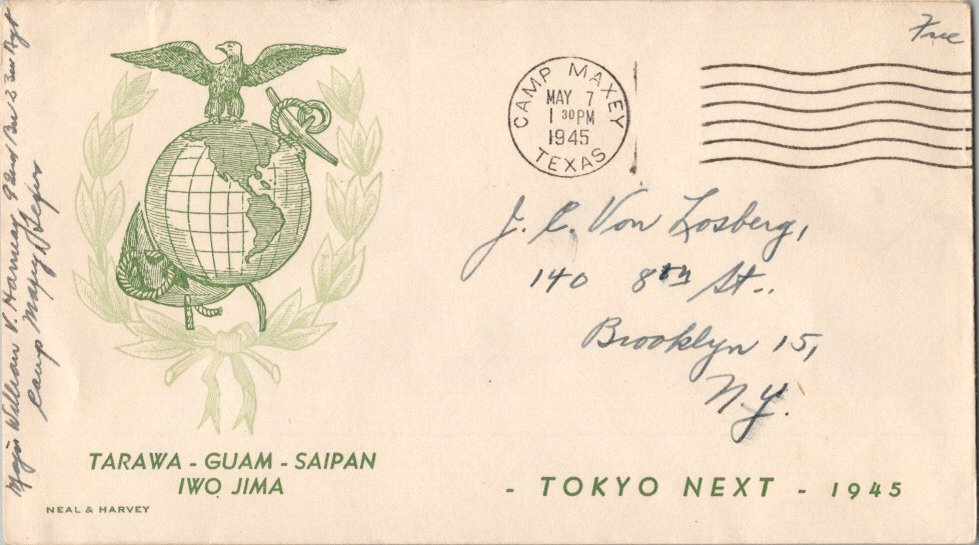 Free
CAMP MAXEY
MAY 7
1 30 PM
1945
TEXAS
Major William V. Harney 92nd Bn
Camp Maxey
J. C. Von Losberg,
140 8th St.,
Brooklyn 15,
N.Y.
TARAWA - GUAM - SAIPAN
IWO JIMA
NEAL & HARVEY
- TOKYO NEXT - 1945